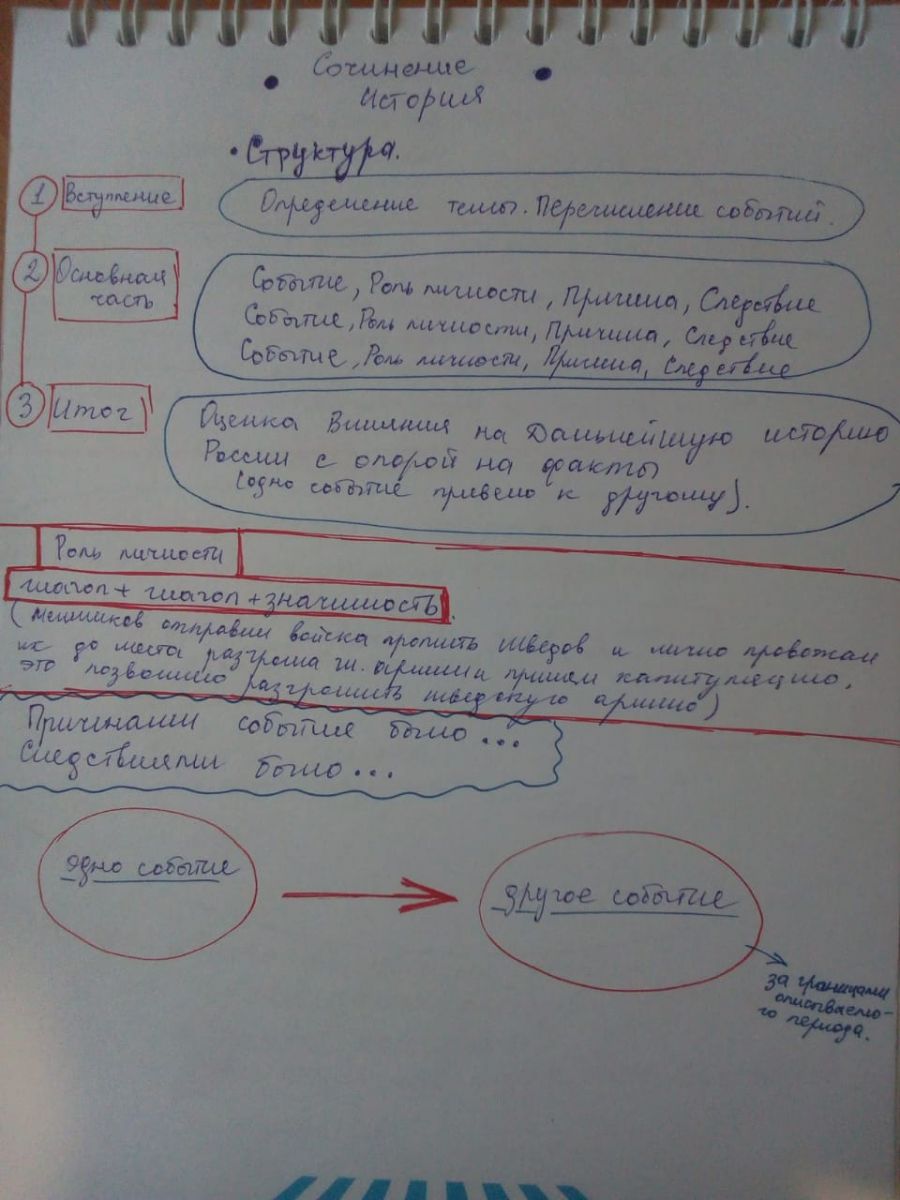 Сочинение
История
• Структура.
1 Вступление
Определение темы. Перечисление событий.
2 Основная
часть
Событие, Роль личности, Причина, Следствие
Событие, Роль личности, Причина, Следствие
Событие, Роль личности, Причина, Следствие
3 Итог
Оценка влияния на Дальнейшую историю
России с опорой на факты
(одно событие привело к другому).
Роль личности
глагол + глагол + значимость.
(Меншиков отправил войска шведов и лично провожал
их до места разгрома гл. армии и принял капитуляцию,
это позволило разгромить шведскую армию)
Причинами событие было ...
Следствиями было ...
одно событие
другое событие
за границами
описываемо-
го периода.